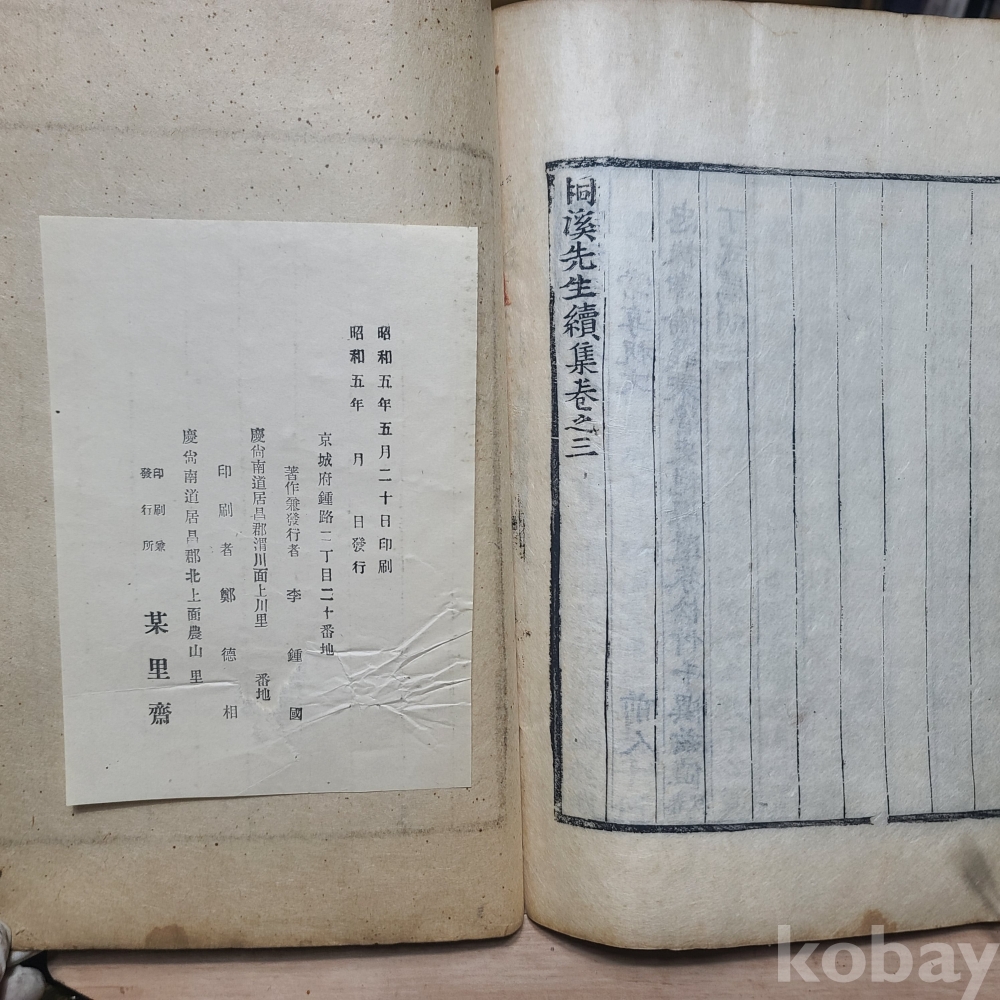 桐溪先生續集卷之三
昭和五年五月二十日印刷
昭和五年 月 日發行
京城府鍾路二丁目二十番地
著作兼發行者 李鍾國
慶尙南道居昌郡渭川面上川里 番地
印刷者 鄭德相
慶尙南道居昌郡北上面農山里
印刷兼
發行所 某里齋
kobay